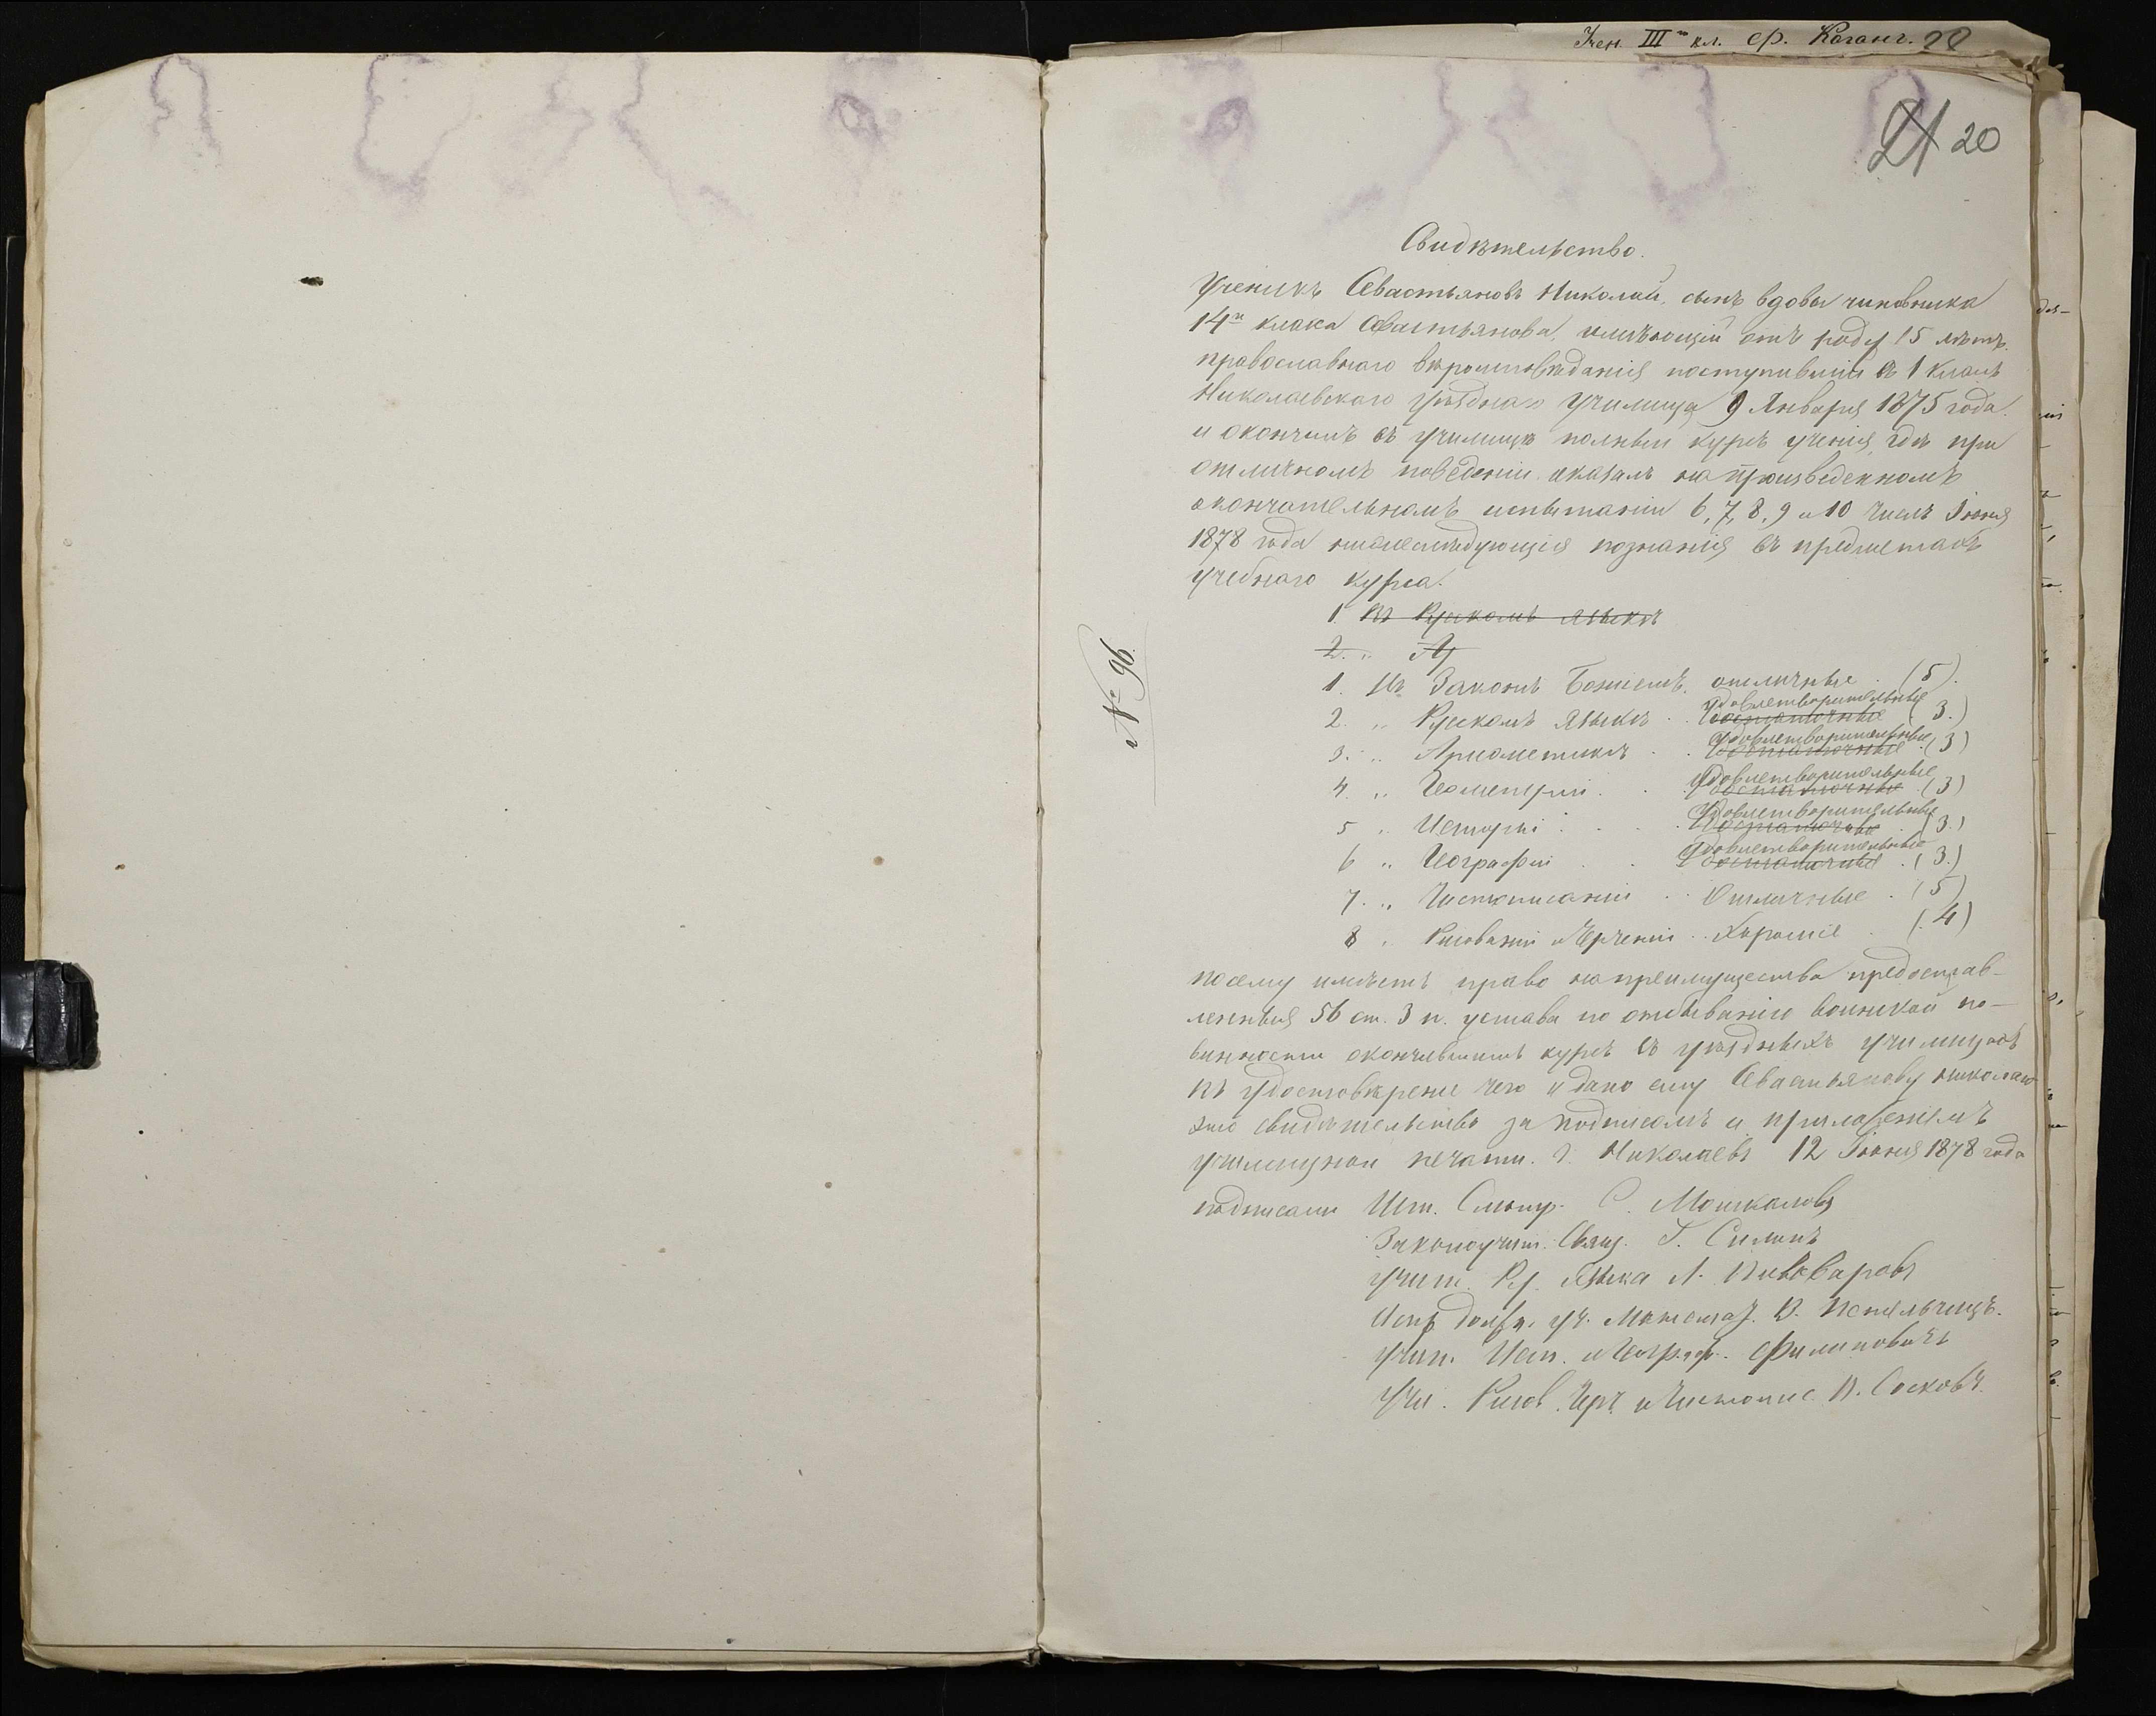 Учен. III го кл. ер. Каганг. 20
21 20
Свидѣтельство.
Ученикъ Севастьяновъ Николай, сынъ вдовы чиновника
14го класа Севастьянова, имѣющій отъ роду 15 лѣтъ,
православнаго вѣроисповѣданія поступившій въ 1 класъ
Николаевскаго уѣзднаго училища 9 Января 1875 года
и окончилъ въ училищѣ полный курсъ ученія, гдѣ при
отличномъ поведеніи оказалъ на произведенномъ
окончательномъ испытаніи 6, 7, 8, 9 и 10 числъ Іюня
1878 года нижеслѣдующія познанія въ предметахъ
учебнаго курса.
1 Въ Рускомъ языкѣ
2. „ А
1. Въ Законѣ Божіемъ. отличные (5).
2. „ Рускомъ языкѣ . . удовлетворительные достаточные (3.)
3. „ Ариѳметикѣ . . удовлетворительные достаточные (3)
4. „ Геометріи . . удовлетворительные достаточные (3)
5 „ Исторіи . . . удовлетворительные достаточные (3.)
6 „ Географіи . . удовлетворительные достаточные . (3.)
7. „ Чистописаніи . . Отличные . (5)
8 „ Рисованіи и Черченіи . . Хорошіе . (4)
посему имѣетъ право на преимущества предостав-
ленныя 56 ст. 3 п. устава по отбыванію воинской по-
винности окончившимъ курсъ въ уѣздныхъ училищахъ
въ удостовѣреніе чего и дано ему Севастьянову Николаю
это свидѣтельство за подписомъ и приложеніемъ
училищной печати. г. Николаевъ 12 Іюня 1878 года
подписали Шт. Смотр. С. Мошкаловъ
Законоучит. Свящ. Г. Силинъ
Учит. Ру. языка А. Пивоваровъ
Исп. должн. уч. Математ. В.
Учит. Ист. и Географ. Филиповичъ
Учи. Рисов. Черч. и Чистопис. В. Сосковъ.
№ 96.